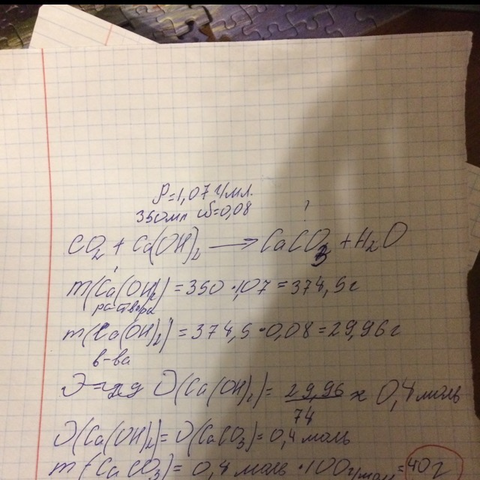 ρ=1,07 г/мл.
350мл ω=0,08 ?
CO₂ + Ca(OH)₂ → CaCO₃ + H₂O
m(Ca(OH)₂) = 350 · 1,07 = 374,5г
раствора
m(Ca(OH)₂) = 374,5 · 0,08 = 29,96 г
в-ва
(Ca(OH)₂) = 29,96/74 ≈ 0,4 моль
ν(Ca(OH)₂) = ν(CaCO₃) = 0,4 моль
m(CaCO₃) = 0,4 моль · 100г/моль = 40г